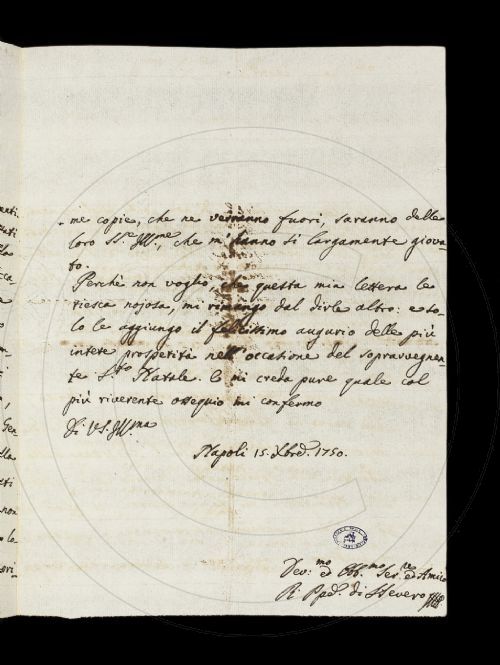 me copie, che ne verranno fuori, saranno delle
loro SS.e Ill.me, che m'hanno sì largamente giova-
to.
Perchè non voglio, che questa mia lettera le
riesca nojosa, mi rimango dal dirle altro: e so-
lo le aggiungo il felicissimo augurio delle più
intere prosperità nell'occasione del sopravvegnen-
te S.to Natale. E mi creda pure quale col
più riverente ossequio mi confermo
Di V.S. Ill.ma
Napoli 15. Xbre. 1750.
Dev.mo ed Obb.mo Ser.re ed Amico
di Severo